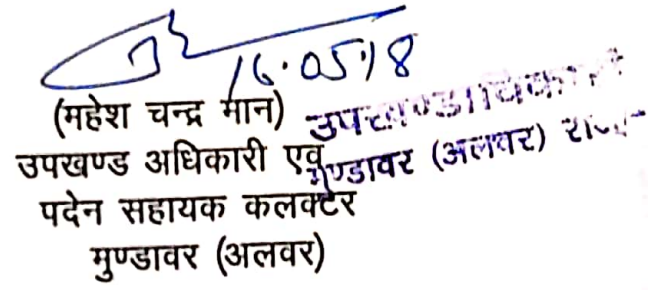 16.05.18
(महेश चन्द्र मान)
उपखण्ड अधिकारी एवं
पदेन सहायक कलक्टर
मुण्डावर (अलवर)
उपखण्डाधिकारी
मुण्डावर (अलवर) राज.